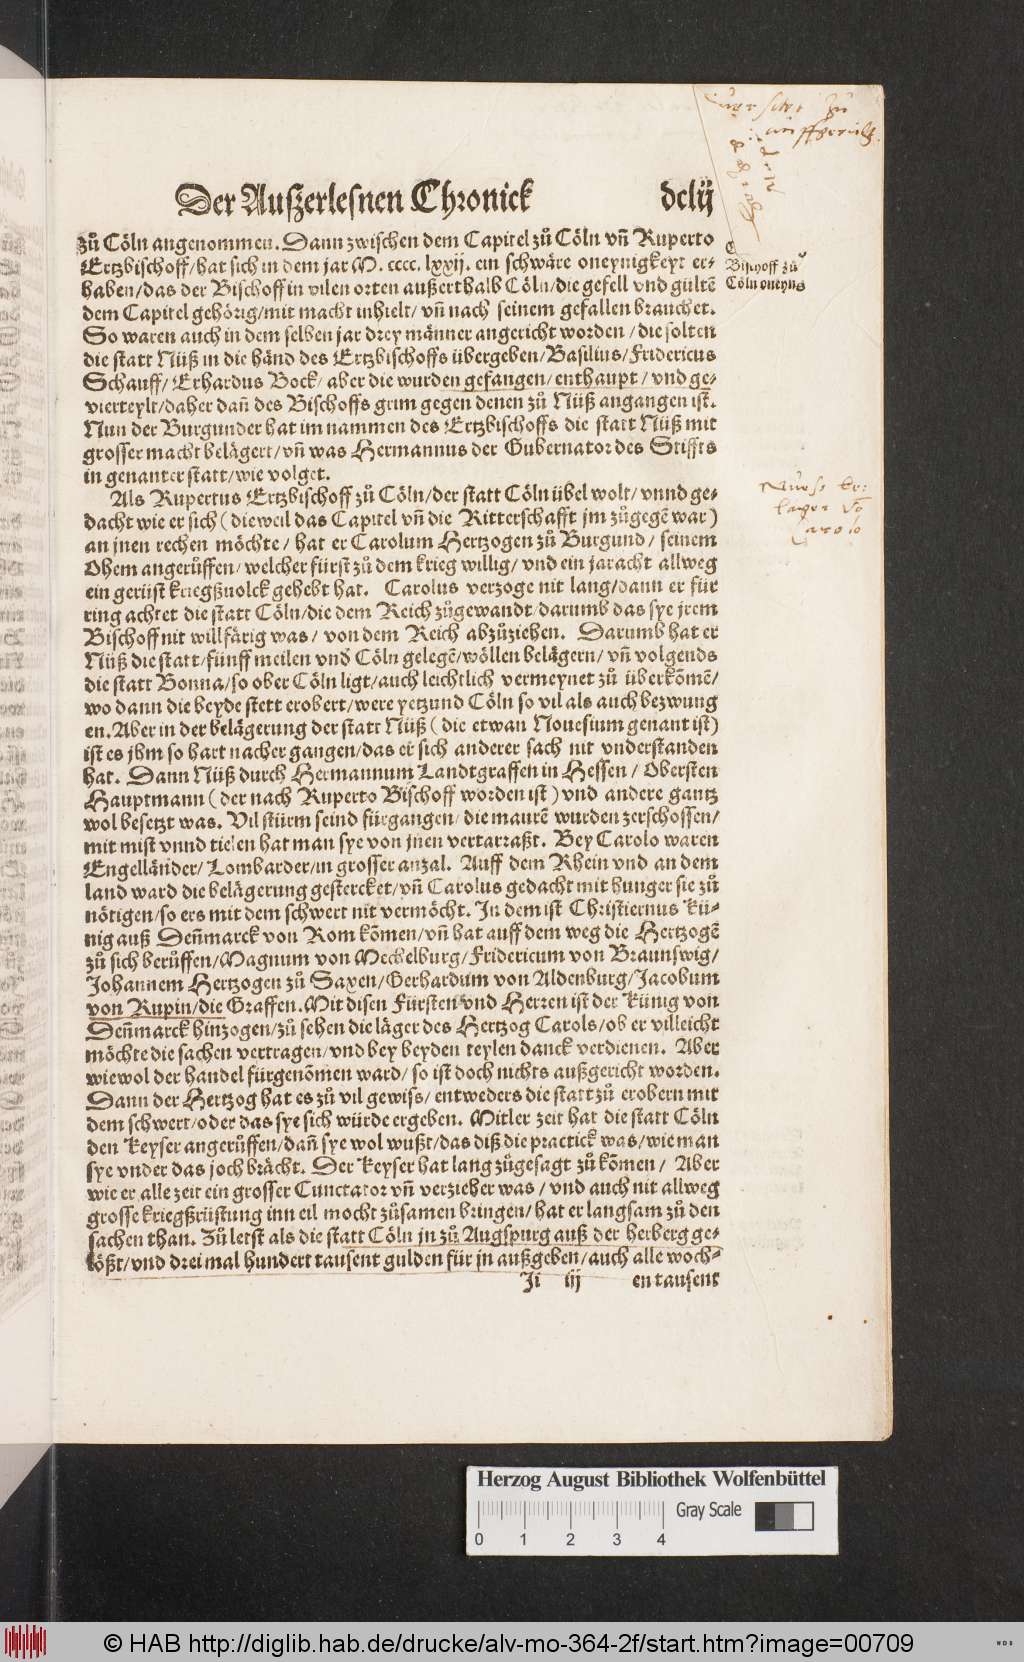 Der Auſzerleſnen Chronick dclij
zů Cöln angenommen. Dann zwiſchen dem Capitel zů Cöln vñ Ruperto
Ertzbiſchoff/hat ſich in dem jar M. cccc. lxxij. ein ſchwäre oneynigkeyt er-
haben/das der Biſchoff in vilen orten auſſerthalb Cöln/die gefell vnd gültē
dem Capitel gehörig/mit macht inhielt/vñ nach ſeinem gefallen brauchet.
So waren auch in dem ſelben jar drey männer angericht worden/die ſolten
die ſtatt Nüß in die händ des Ertzbiſchoffs übergeben/Baſilius/Fridericus
Schauff/Erhardus Bock/aber die wurden gefangen/enthaupt/vnd ge-
vierteylt/daher dañ des Biſchoffs grim gegen denen zů Nüß angangen iſt.
Nun der Burgunder hat im nammen des Ertzbiſchoffs die ſtatt Nüß mit
groſſer macht belägert/vñ was Hermannus der Gubernator des Stiffts
in genanter ſtatt/wie volget.
Als Rupertus Ertzbiſchoff zů Cöln/der ſtatt Cöln übel wolt/vnnd ge-
dacht wie er ſich (dieweil das Capitel vñ die Ritterſchafft jm zůgegē war)
an jnen rechen möchte/hat er Carolum Hertzogen zů Burgund/ſeinem
Ohem angerůffen/welcher fürſt zů dem krieg willig/vnd ein jaracht allweg
ein gerüſt kriegßuolck gehebt hat. Carolus verzoge nit lang/dann er für
ring achtet die ſtatt Cöln/die dem Reich zůgewandt/darumb das ſye jrem
Biſchoff nit willfärig was/von dem Reich abzůziehen. Darumb hat er
Nüß die ſtatt/fünff meilen vnd Cöln gelegē/wöllen belägern/vñ volgends
die ſtatt Bonna/ſo ober Cöln ligt/auch leichtlich vermeynet zů überkōmē/
wo dann die beyde ſtett erobert/were yetzund Cöln ſo vil als auch bezwung
en. Aber in der belägerung der ſtatt Nüß (die etwan Noueſium genant iſt)
iſt es jhm ſo hart nacher gangen/das er ſich anderer ſach nit vnderſtanden
hat. Dann Nüß durch Hermannum Landtgraffen in Heſſen/Oberſten
Hauptmann (der nach Ruperto Biſchoff worden iſt) vnd andere gantz
wol beſetzt was. Vil ſtürm ſeind fürgangen/die maurē wurden zerſchoſſen/
mit miſt vnnd tielen hat man ſye von jnen vertarraßt. Bey Carolo waren
Engelländer/Lombarder/in groſſer anzal. Auff dem Rhein vnd an dem
land ward die belägerung geſtercket/vñ Carolus gedacht mit hunger ſie zů
nötigen/ſo ers mit dem ſchwert nit vermöcht. In dem iſt Chriſtiernus Kü-
nig auß Deñmarck von Rom kōmen/vñ hat auff dem weg die Hertzogē
zů ſich berůffen/Magnum von Mechelburg/Fridericum von Braunſwig/
Johannem Hertzogen zů Saxen/Gerhardum von Aldenburg/Jacobum
von Rupin/die Graffen. Mit diſen Fürſten vnd Herren iſt der Künig von
Deñmarck hinzogen/zů ſehen die läger des Hertzog Carols/ob er villeicht
möchte die ſachen vertragen/vnd bey beyden teylen danck verdienen. Aber
wiewol der handel fürgenōmen ward/ſo iſt doch nichts außgericht worden.
Dann der Hertzog hat es zů vil gewiſs/entweders die ſtatt zů erobern mit
dem ſchwert/oder das ſye ſich würde ergeben. Mitler zeit hat die ſtatt Cöln
den Keyſer angerůffen/dañ ſye wol wußt/das diß die practick was/wie man
ſye vnder das joch brächt. Der Keyſer hat lang zůgeſagt zů kōmen/Aber
wie er alle zeit ein groſſer Cunctator vñ verzieher was/vnd auch nit allweg
groſſe kriegßrüſtung inn eil mocht zůſamen bringen/hat er langſam zů den
ſachen than. Zů letſt als die ſtatt Cöln jn zů Augſpurg auß der herberg ge-
lößt/vnd drei mal hundert tauſent gulden für jn außgeben/auch alle woch-
Ji iij en tauſent
Biſchoff zů
Cöln oneyns
Carolo
Herzog August Bibliothek Wolfenbüttel
Gray Scale
0 1 2 3 4
© HAB http://diglib.hab.de/drucke/alv-mo-364-2f/start.htm?image=00709